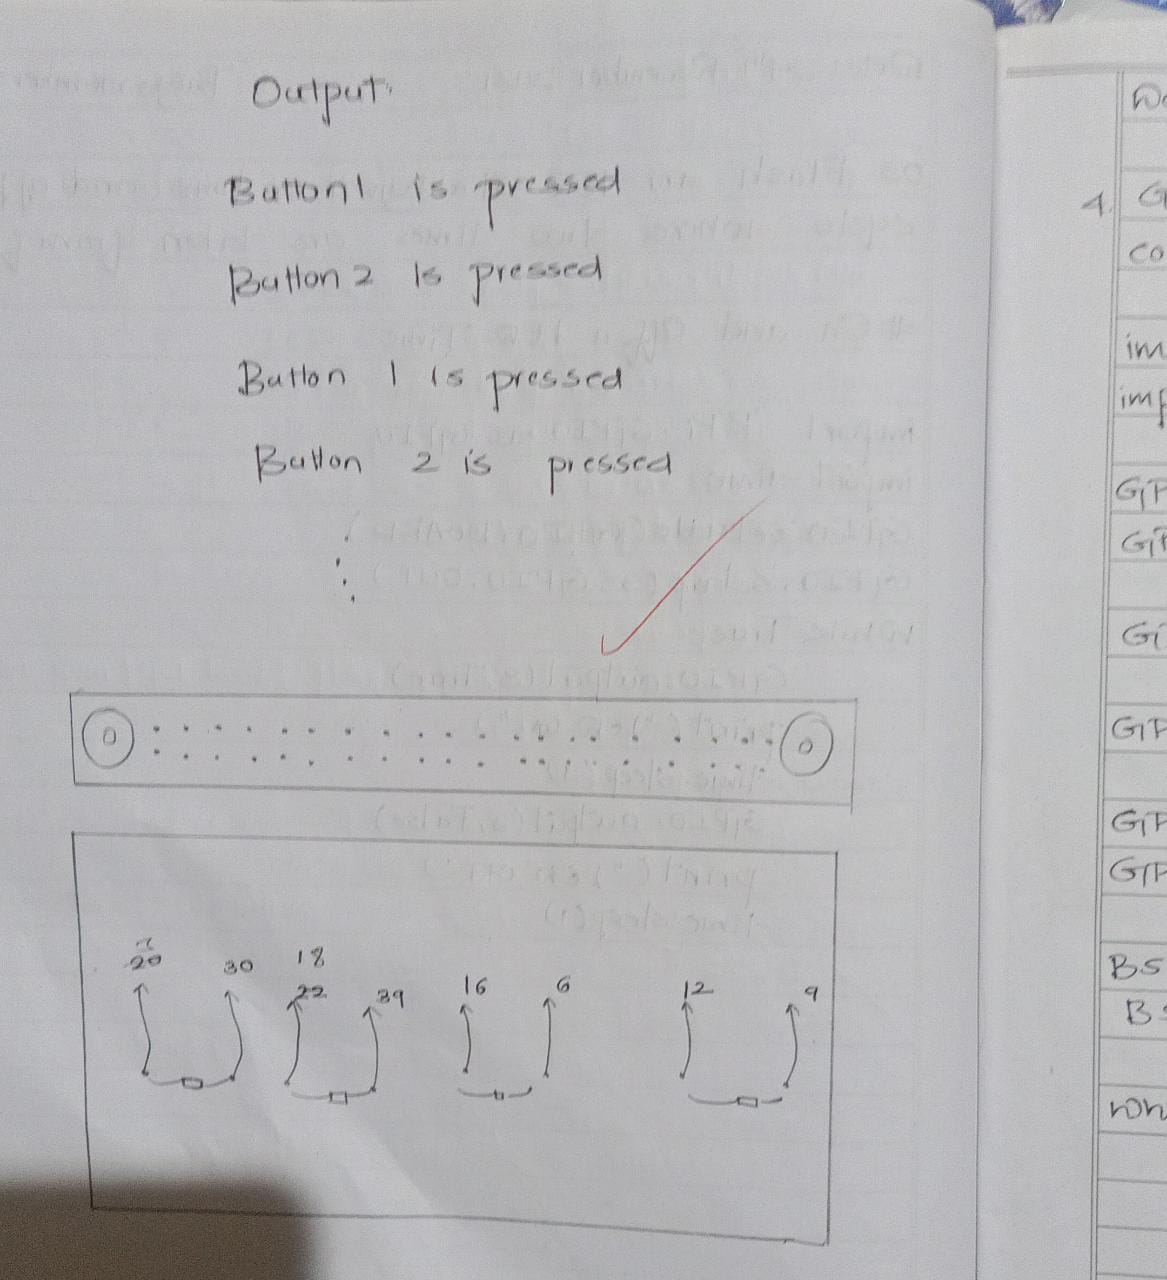 Output
Button 1 is pressed
Button 2 is pressed
Button 1 is pressed
Button 2 is pressed
20 30 18
22 39 16 6 12 9
4. G
co
im
imp
GP
GP
Gi
GP
GP
GP
BS
BS
wh